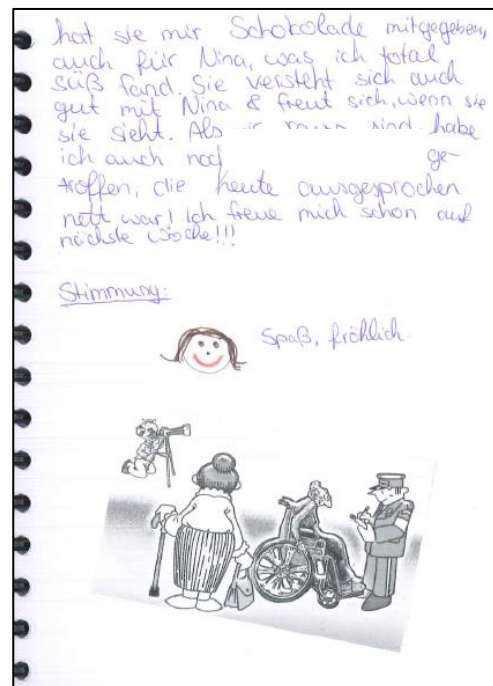 hat sie mir Schokolade mitgegeben,
auch für Nina, was ich total
süß fand. Sie versteht sich auch
gut mit Nina & freut sich, wenn sie
sie sieht. Als sind, habe
ich auch noch ge-
troffen, die heute ausgesprochen
nett war! Ich freue mich schon auf
nächste Woche!!!
Stimmung:
Spaß, fröhlich